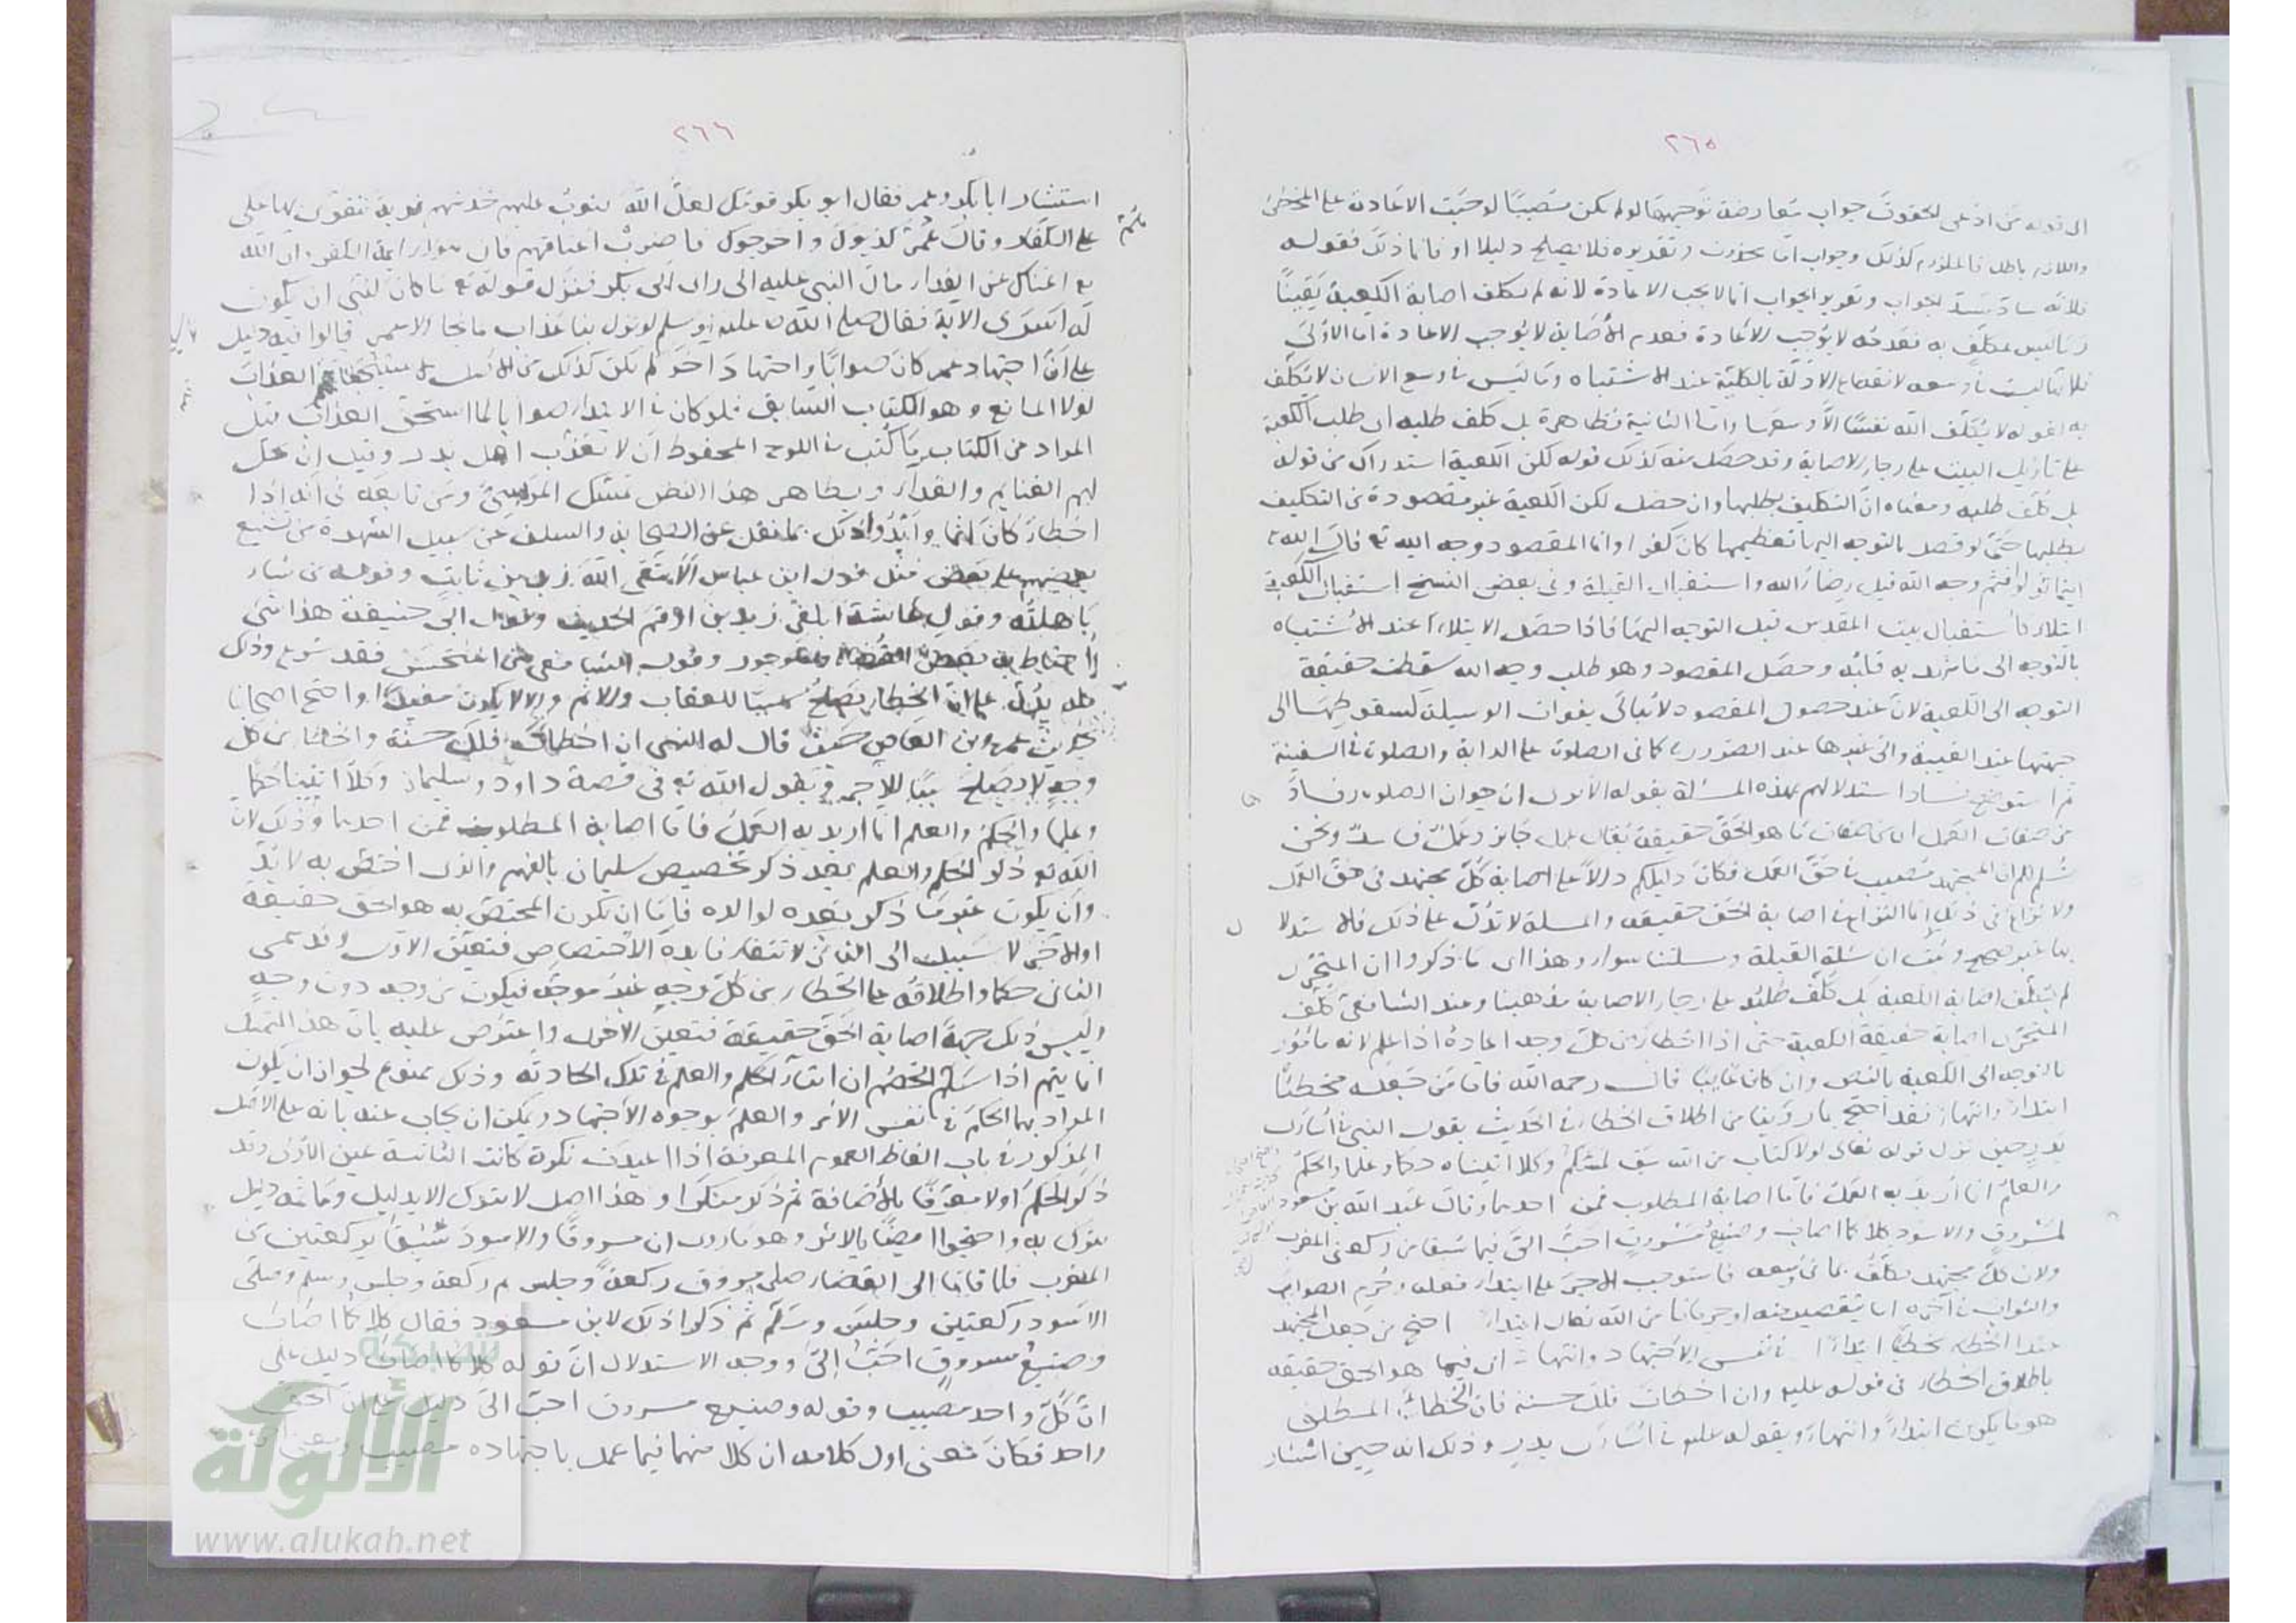 ٢٦٥
الى قوله من ادعى لحقوق جواب معارضة توجيهها لو لم يكن مصيبًا لوجبت الاعادة على المخطئ
واللازم باطل فالملزوم كذلك وجواب اما محذوف وتقديره فلا يصلح دليلا او فانا ذلك فقوله
فلانه ساد مسد الجواب وتقرير الجواب انما لا يجب الاعادة لانه لم يكلف اصابة الكعبة يقينًا
وما ليس بمكلف به فعدمه لا يوجب الاعادة فعدم الاصابة لا يوجب الاعادة اما الاولى
فلانها ليست في وسعه لانقطاع الادلة بالكلية عند الاشتباه وما ليس في وسع الانسان لا يكلف
به لقوله لا يكلف الله نفسًا الا وسعها واما الثانية فظاهرة بل كلف طلبه اى طلب الكعبة
على تاويل البيت على رجاء الاصابة وقد حصل منه كذلك قوله لكن الكعبة استدراك من قوله
بل كلف طلبه ومعناه ان التكليف بطلبها وان حصل لكن الكعبة غير مقصودة من التكليف
بطلبها حتى لو قصد بالتوجه اليها تعظيمها كان كفرا وانما المقصود وجه الله تع قال الله تع
اينما تولوا فثم وجه الله قيل رضاء الله واستقبال القبلة وفى بعض النسخ استقبال الكعبة
ابتلاء كاستقبال بيت المقدس قبل التوجه اليها فاذا حصل الابتلاء عند الاشتباه
بالتوجه الى ما يريد به قلبه وحصل المقصود وهو طلب وجه الله سقطت حقيقة
التوجه الى الكعبة لان عند حصول المقصود لا يبالى بفوات الوسيلة كسقوطها الى
جهتها عند الغيبة والى غيرها عند الضرورة كما فى الصلوة على الدابة والصلوة فى السفينة
ثم استوضح فساد استدلالهم بهذه المسئلة بقوله الا يرى ان جواز الصلوة وفساده
من صفات العمل اى من صفات ما هو الحق حقيقة يقال عمل جائز وعمل فاسد ونحن
نسلم لهم ان المجتهد مصيب فى حق العمل فكان دليلكم دالا على اصابة كل مجتهد فى حق العمل
ولا نزاع فى ذلك انما النزاع فى اصابة الحق حقيقة والمسئلة لا تدل على ذلك فالاستدلال
بها غير صحيح وثبت ان مسئلة القبلة ومسئلتنا سواء وهذا اى ما ذكروا ان المتحرى
لم يكلف اصابة الكعبة بل كلف طلبه على رجاء الاصابة مذهبنا وعند الشافعى كلف
المتحرى اصابة حقيقة الكعبة حتى اذا اخطاء من كل وجه اعاده اذا علم لانه مامور
بالتوجه الى الكعبة بالنص وان كان غايبًا قال رحمه الله فاما من جعله مخطئًا
ابتداءً وانتهاءً فقد احتج بما روينا من اطلاق الخطاء فى الحديث بقول النبى فى اسارى
بدر حين نزل قوله تعالى لولا كتاب من الله سبق لمسكم وكلا اتيناه حكما وعلما والحكم
والعلم انما اريد به العمل فاما اصابة المطلوب فمن احدهما وقال عبد الله بن مسعود
لمسروق والاسود كلا كما اصاب وصنيع مسروق احب الى فيما سبقا من ركعتى المغرب
ولان كل مجتهد مكلف بما فى وسعه فاستوجب الاجر على ابتداء فعله وحرم الصواب
والثواب فى آخره اما بتقصير منه او حرمانا من الله تعالى ابتداءً احتج من جعل المجتهد
عند الخطاء مخطئًا ابتداءً اى فى نفس الاجتهاد وانتهاءً اى فيما هو الحق حقيقة
باطلاق الخطاء فى قوله عليم وان اخطات فلك حسنة فان الخطاء المطلق
هو ما يكون ابتداءً وانتهاءً وبقوله عليم فى اسارى بدر وذلك انه حين استشار
٢٦٦
استشار ابا بكر وعمر فقال ابو بكر قومك لعل الله يتوب عليهم خذ منهم فدية نتقوى بها على
على الكفار وقال عمر كذبوك واخرجوك فاضرب اعناقهم فان هؤلاء ايمة الكفر وان الله
تع اغناك عن الفداء مال النبى عليه الى راى ابى بكر فنزل قوله تع ما كان لنبى ان يكون
له اسرى الاية فقال صلى الله عليه وسلم لو نزل بنا عذاب ما نجا الا عمر قالوا فيه دليل
على ان اجتهاد عمر كان صوابًا واجتهاد احر لم يكن كذلك من الاصل العذاب
لولا المانع وهو الكتاب السابق فلو كان فى الابتداء صوابا لما استحق العذاب قيل
المراد من الكتاب ما كتب فى اللوح المحفوظ ان لا يعذب اهل بدر وقيل ان يحل
لهم الغنايم والفداء وبظاهر هذا النص تمسك المريسى ومن تابعه فى انه اذا
اخطاء كان آثما وايدوا ذلك بما نقل عن الصحابة والسلف عن سبيل الشهرة من تشنيع
بعضهم على بعض مثل قول ابن عباس الا يتقى الله زيد بن ثابت وقوله من شاء
باهلته وقول عايشة ابلغى زيد بن ارقم الحديث وقول ابى حنيفة هذا شئ
احتاط به بعض القضاة وهو جور وقول الشافعى من استحسن فقد شرع وذلك
كله يدل على ان الخطاء يصلح سببًا للعقاب والاثم والا لا يكون مفيدًا واحتج اصحابنا
بحديث عمرو بن العاص حيث قال له النبى ان اخطات فلك حسنة والخطا من كل
وجه لا يصلح سببًا للاجر وبقول الله تع فى قصة داود وسليمان وكلا اتينا حكما
وعلما والحكم والعلم انما اريد به العمل فاما اصابة المطلوب فمن احدهما وذلك لان
الله تع ذكر الحكم والعلم بعد ذكر تخصيص سليمان بالفهم والذى اختص به لا بد
وان يكون غير ما ذكر بعده لوالده فاما ان يكون المختص به هو الحق حقيقة
او الاخر لا سبيل الى الثانى لانتفاء فايدة الاختصاص فتعين الاول وقد سمى
الثانى حكما واطلاقه على الخطاء من كل وجه غير موجه فيكون من وجه دون وجه
وليس ذلك جهة اصابة الحق حقيقة فتعين الاخرى واعترض عليه بان هذا التمسك
انما يتم اذا سلم الخصم ان ايتاء الحكم والعلم فى تلك الحادثة وذلك ممنوع لجواز ان يكون
المراد بهما الحكم فى نفس الامر والعلم بوجوه الاجتهاد ويمكن ان يجاب عنه بانه على الاصل
المذكور فى باب الفاظ العموم المعرفة اذا اعيدت نكرة كانت الثانية عين الاولى وقد
ذكر الحكم اولا معرفا بالاضافة ثم ذكر منكرا وهذا اصل لا يترك الا بدليل وما ثمه دليل
يترك به واحتجوا ايضًا بالاثر وهو ما روى ان مسروقًا والاسود سبقا بركعتين من
المغرب فلما قاما الى القضاء صلى مسروق ركعة وجلس ثم ركعة وجلس وسلم وصلى
الاسود ركعتين وجلس وسلم ثم ذكرا ذلك لابن مسعود فقال كلا كما اصاب
وصنيع مسروق احب الى ووجه الاستدلال ان قوله كلا كما اصاب دليل على
ان كل واحد مصيب وقوله وصنيع مسروق احب الى دليل على ان الحق
واحد فكان معنى اول كلامه ان كلا منهما فيما عمل باجتهاده مصيب
شبكة
الألوكة
www.alukah.net